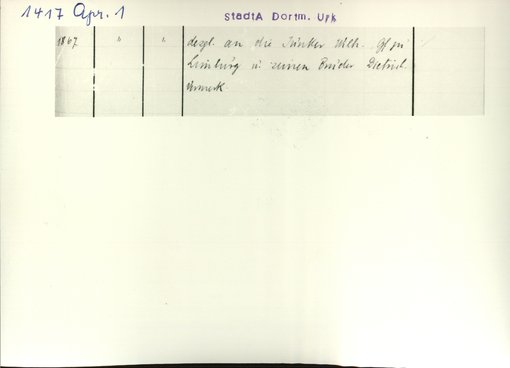 1417 Apr. 1
StadtA Dortm. Urk
1867 " " desgl. an die Junker Wilh. Gf zu
Limburg u. seinen Bruder Dietrich